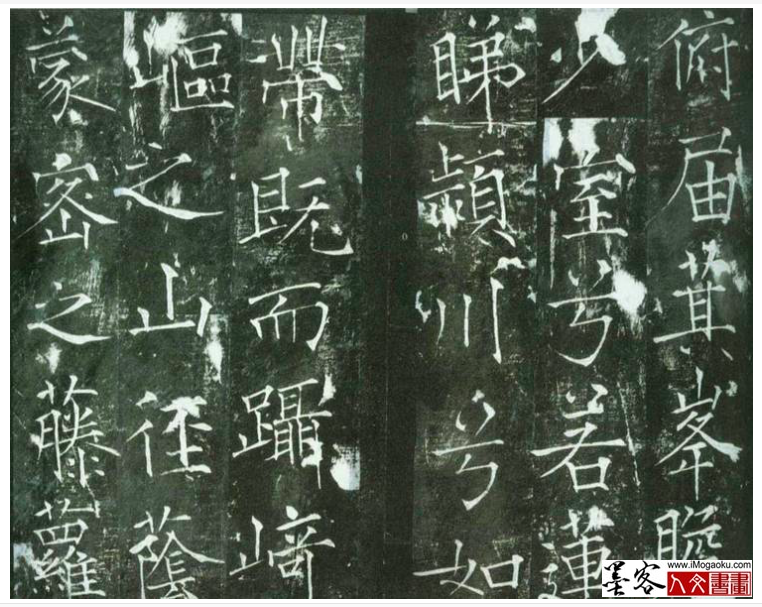 俯届萁峯瞻
少室兮若蓮
睇潁川兮如
帶既而躡崎
嶇之山徑蔭
蒙密之藤蘿
墨客
www.iMogaoku.com
人文書畫